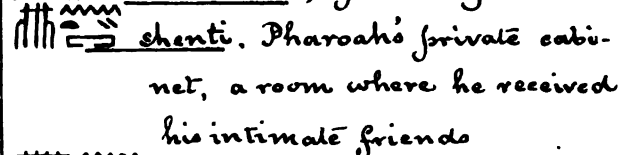 shenti. Pharoah's private cabi-
net, a room where he received
his intimate friends